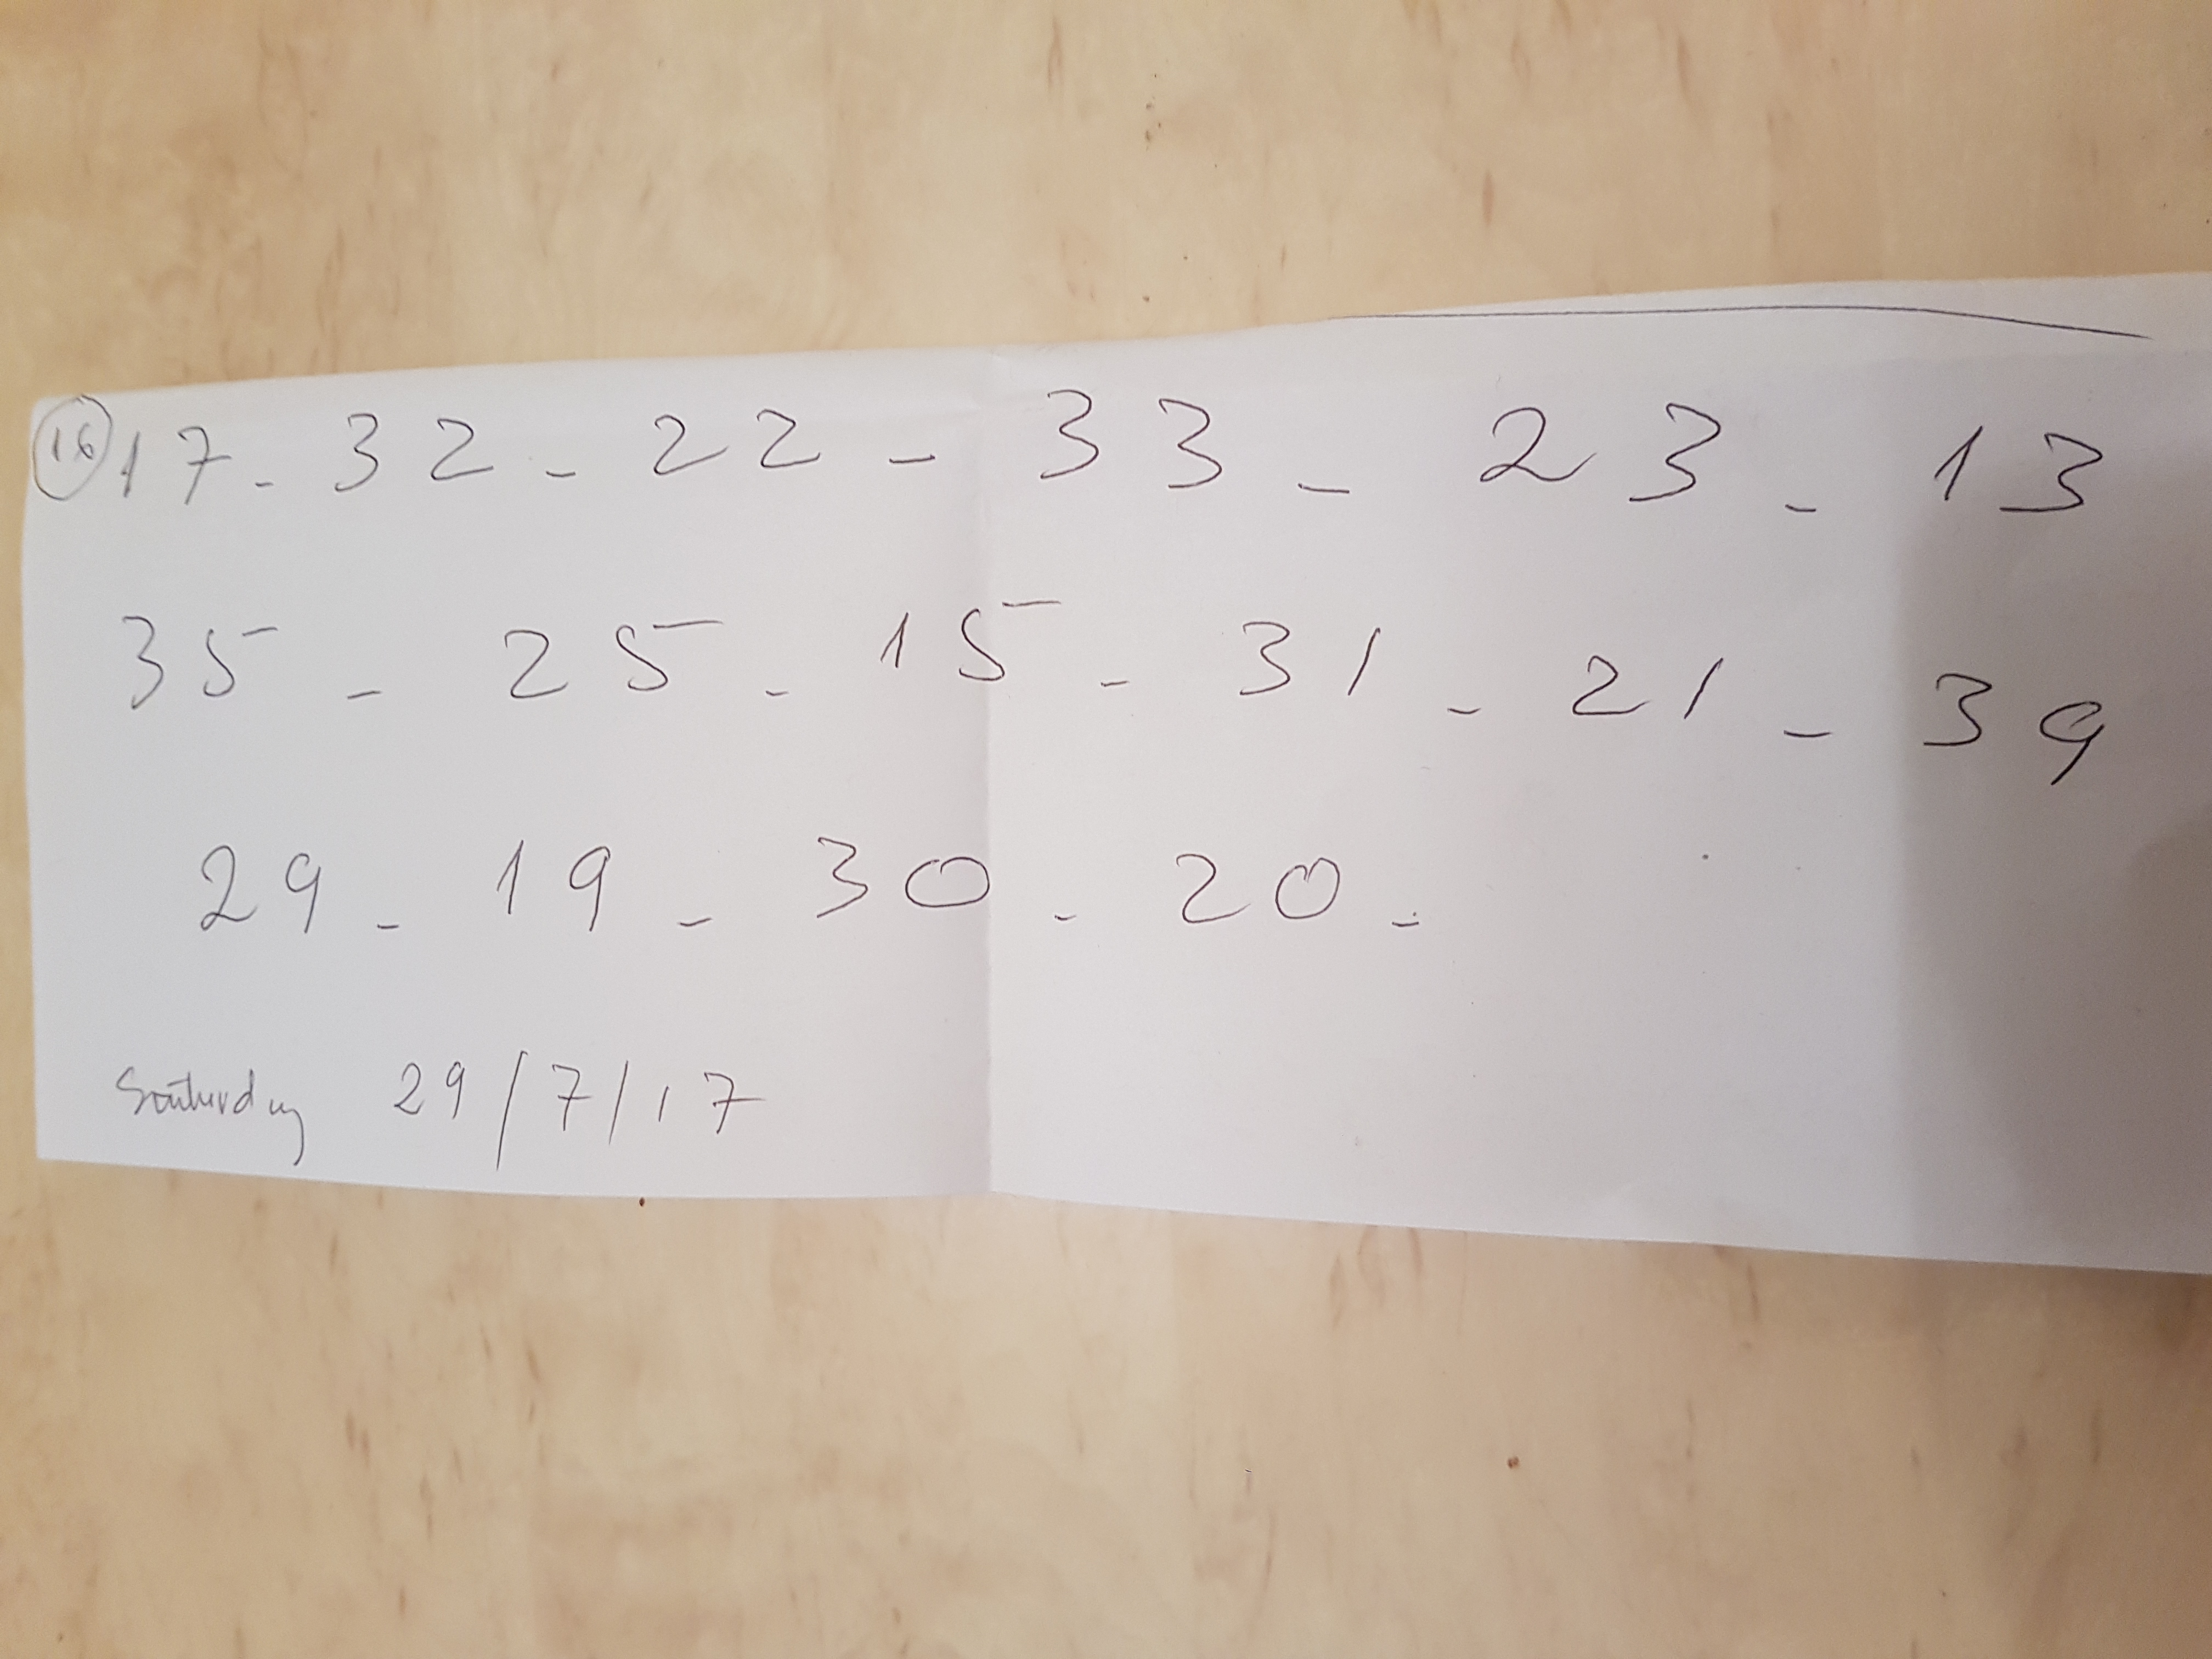 16 17 - 32 - 22 - 33 - 23 - 13
35 - 25 - 15 - 31 - 21 - 39
29 - 19 - 30 - 20 -
Saturday 29/7/17